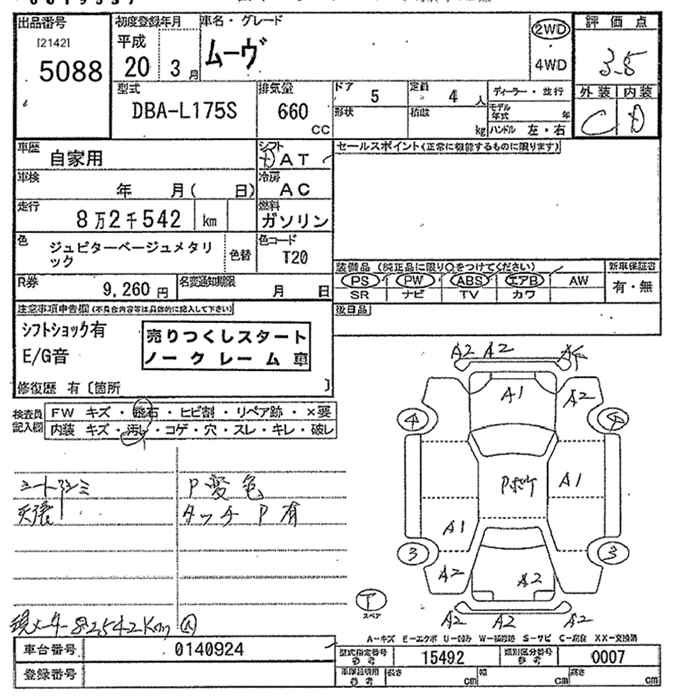 出品番号 初度登録年月 車名・グレード 2WD 評価点
[2142] 平成 ムーヴ 3.5
5088 20年 3月 4WD 外装 内装
型式 排気量 ドア 5 定員 4人 ディーラー・並行 C D
DBA-L175S 660 CC 形状 積載 kg モデル年式 年
ハンドル 左・右
車歴 自家用 シフト AT セールスポイント(正常に機能するものに限ります)
車検 年 月( 日) 冷房 AC
走行 8万2千542 km 燃料 ガソリン
色 ジュピターベージュメタリック 色替 色コード T20
装備品(純正品に限り○をつけてください) 新車保証書
R券 9,260円 名変通知期限 月 日 PS PW ABS エアB AW 有・無
SR ナビ TV カワ
注意事項申告欄(不具合内容等は具体的に記入して下さい) 後日品
シフトショック有 売りつくしスタート
E/G音 ノークレーム車
修復歴 有〔箇所 〕
検査員記入欄 FW キズ・飛石・ヒビ割・リペア跡・×要
内装 キズ・汚レ・コゲ・穴・スレ・キレ・破レ
A2 A2
A1 A2
4 4
P変色 A1
タッチP有
A1
3 3
A2 A2
T スペア
A2 A2 A2
現メーター82542Km A
A-キズ E-エクボ U-凹み W-補修跡 S-サビ C-腐食 XX-交換済
車台番号 0140924 型式指定番号 参考 15492 類別区分番号 参考 0007
登録番号 車庫証明用 参考 長さ cm 幅 cm 高さ cm